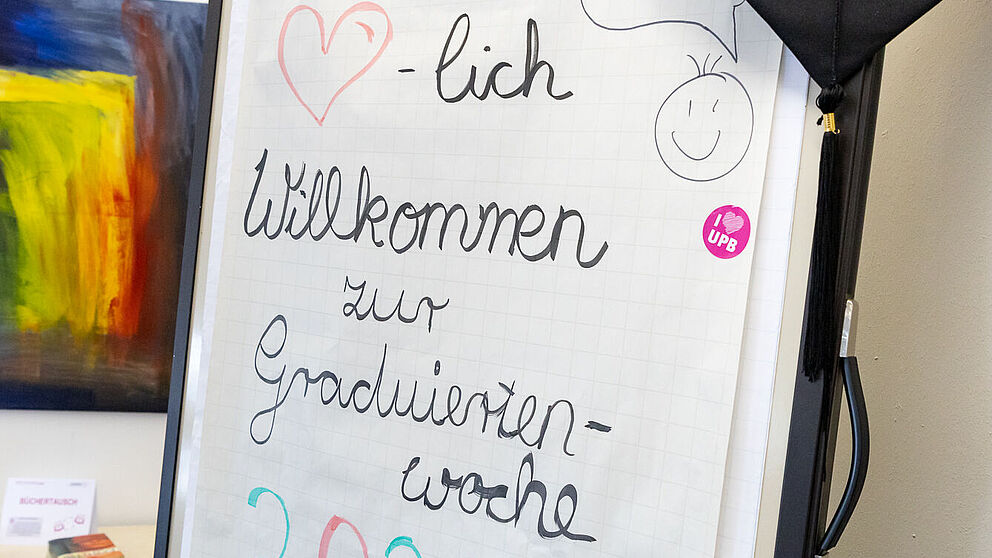 -lich
Willkommen
zur
Graduierten-
woche
I
UPB
BÜCHERTAUSCH